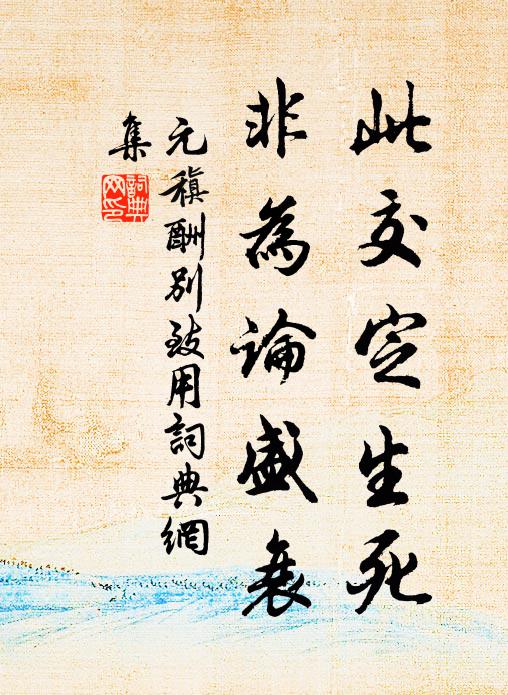 此交定生死
非為論盛衰
元稹酬別致用詞典網
集
詞典
网印